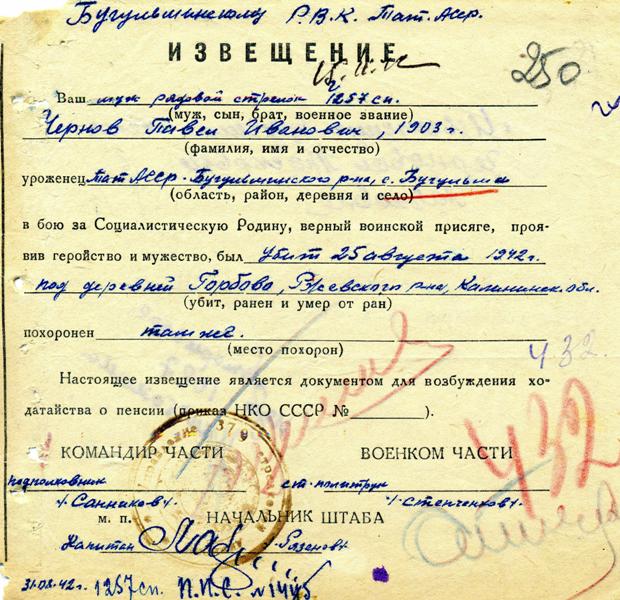 Бугульминскому Р.В.К. Тат. АССР.
ИЗВЕЩЕНИЕ
250
Ваш муж рядовой стрелок 1257 сп.
(муж, сын, брат, военное звание)
Чернов Павел Иванович, 1903 г.
(фамилия, имя и отчество)
уроженец Тат АССР - Бугульминского р-на, с. Бугульма
(область, район, деревня и село)
в бою за Социалистическую Родину, верный воинской присяге, проя-
вив геройство и мужество, был убит 25 августа 1942 г.
под деревней Горбово, Ржевского р-на, Калининск. обл.
(убит, ранен и умер от ран)
похоронен там же.
(место похорон)
432.
Настоящее извещение является документом для возбуждения хо-
датайства о пенсии (приказ НКО СССР № ).
432
379
КОМАНДИР ЧАСТИ ВОЕНКОМ ЧАСТИ
подполковник ст. политрук
/Санников/ /Степченков/
м. п. НАЧАЛЬНИК ШТАБА
Капитан /Рязанов/
31.08.42 г. 1257 сп. П.П.С. № 1445